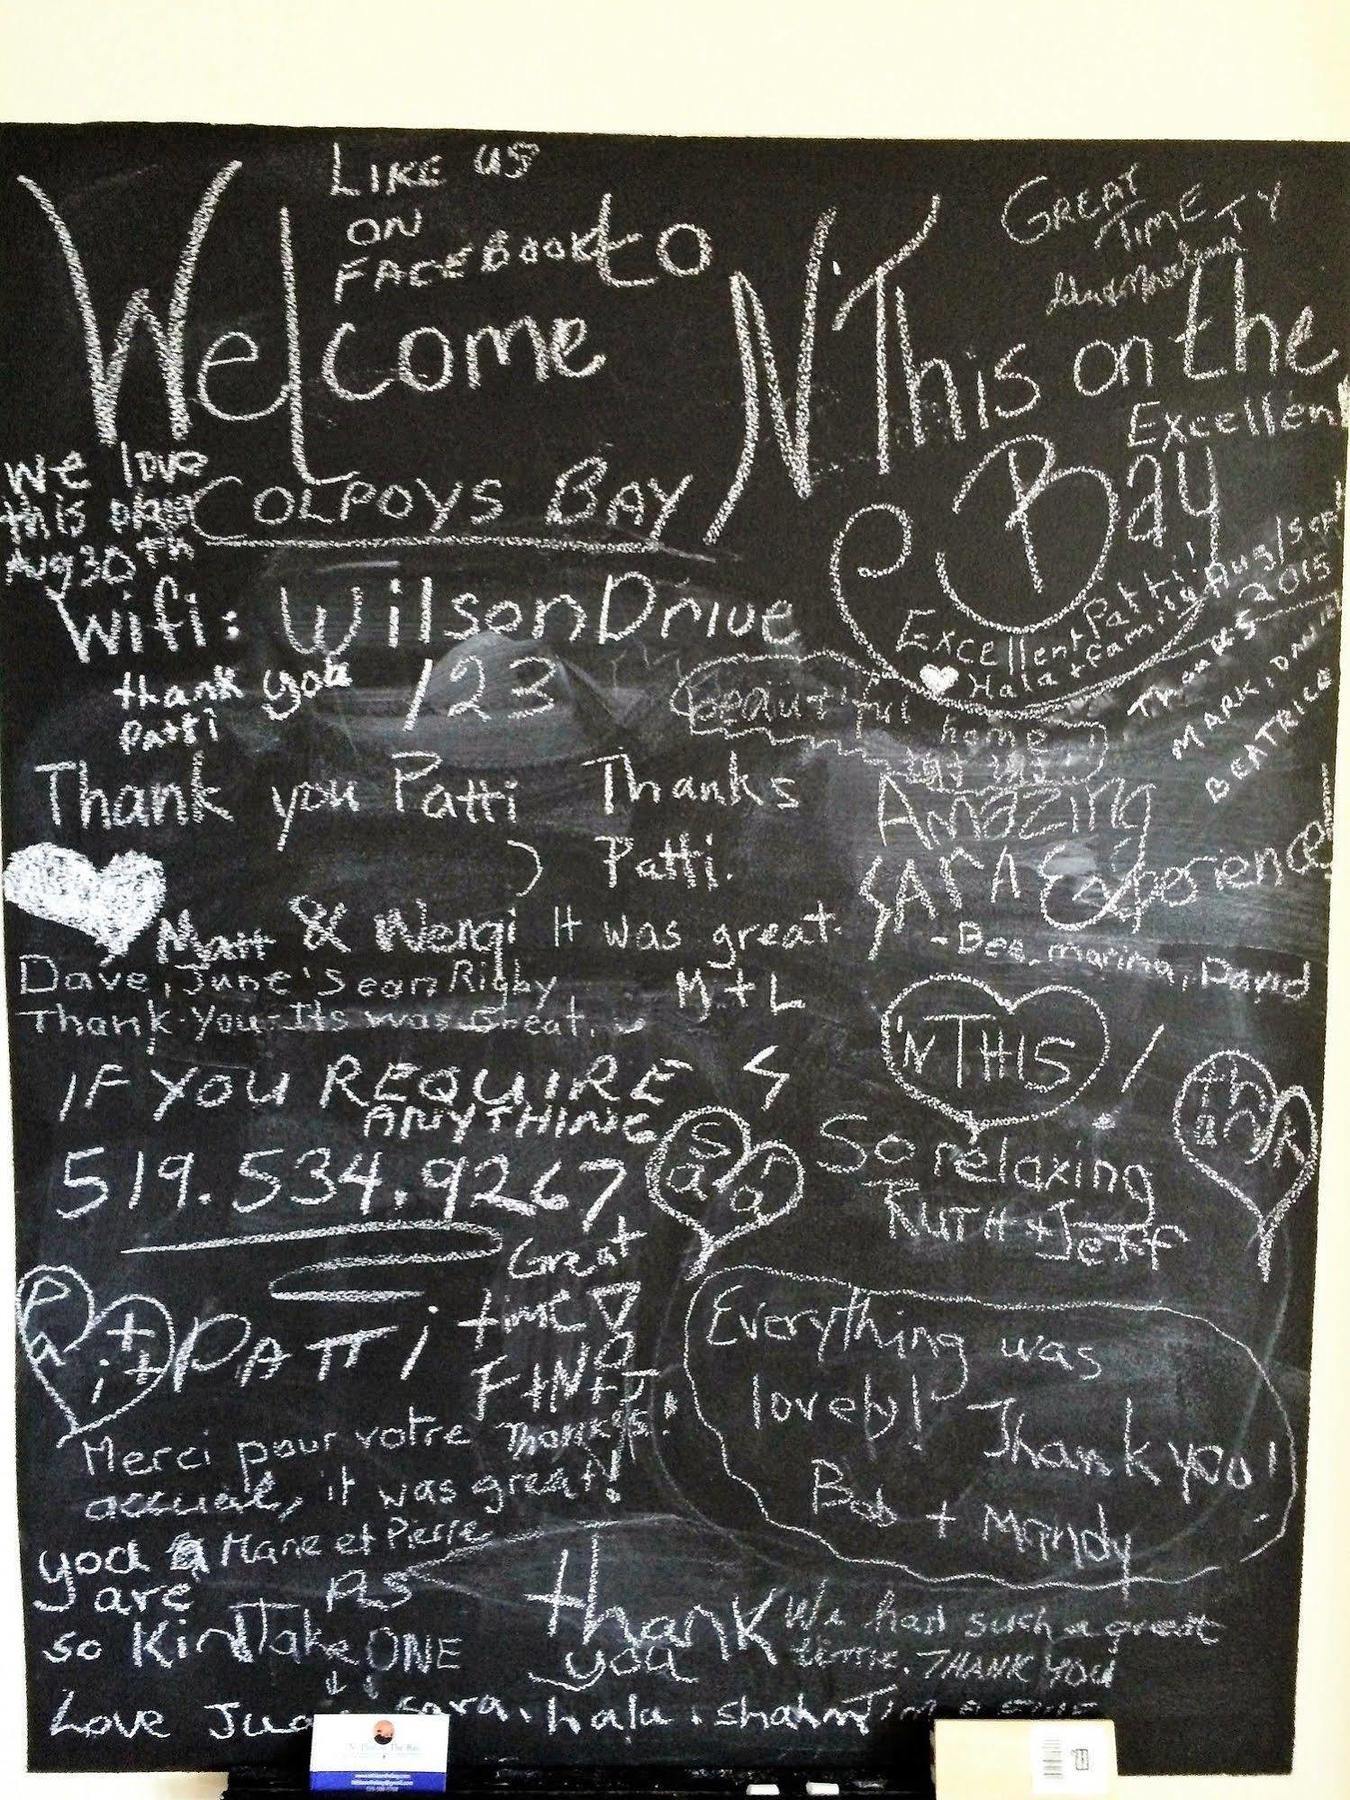 LIKE US
ON
FACEBOOK
Welcome to N'This on the
Bay
GREAT
TIME TY
COLPOYS BAY
we love
this place
Aug 30th
Excellent
Excellent Patti!
Hala + family
Aug/Sept
2015
Thanks
MARK, DAVID
BEATRICE
Wifi: WilsonDrive
123
thank you
Patti
Beautiful
home
Thank you Patti
Thanks
Patti.
It was great.
M + L
Amazing
SARA Experience!
- Bea, marina, David
Matt & Wenqi
Dave, June's Sean Rigby
Thank-You-Its was Great.
'N THIS
thank
IF YOU REQUIRE
ANYTHING
519.534.9267
PATTi
Sara
So relaxing
RUTH + Jeff
Patti
Great
time
Thanks!
Everything was
lovely! Thank you!
Bob + Mandy
Merci pour votre
accueil, it was great!
Marie et Pierre
you
are
so Kind
Take ONE
thank
you
We had such a great
time. THANK YOU
Love
sara. hala. shahm